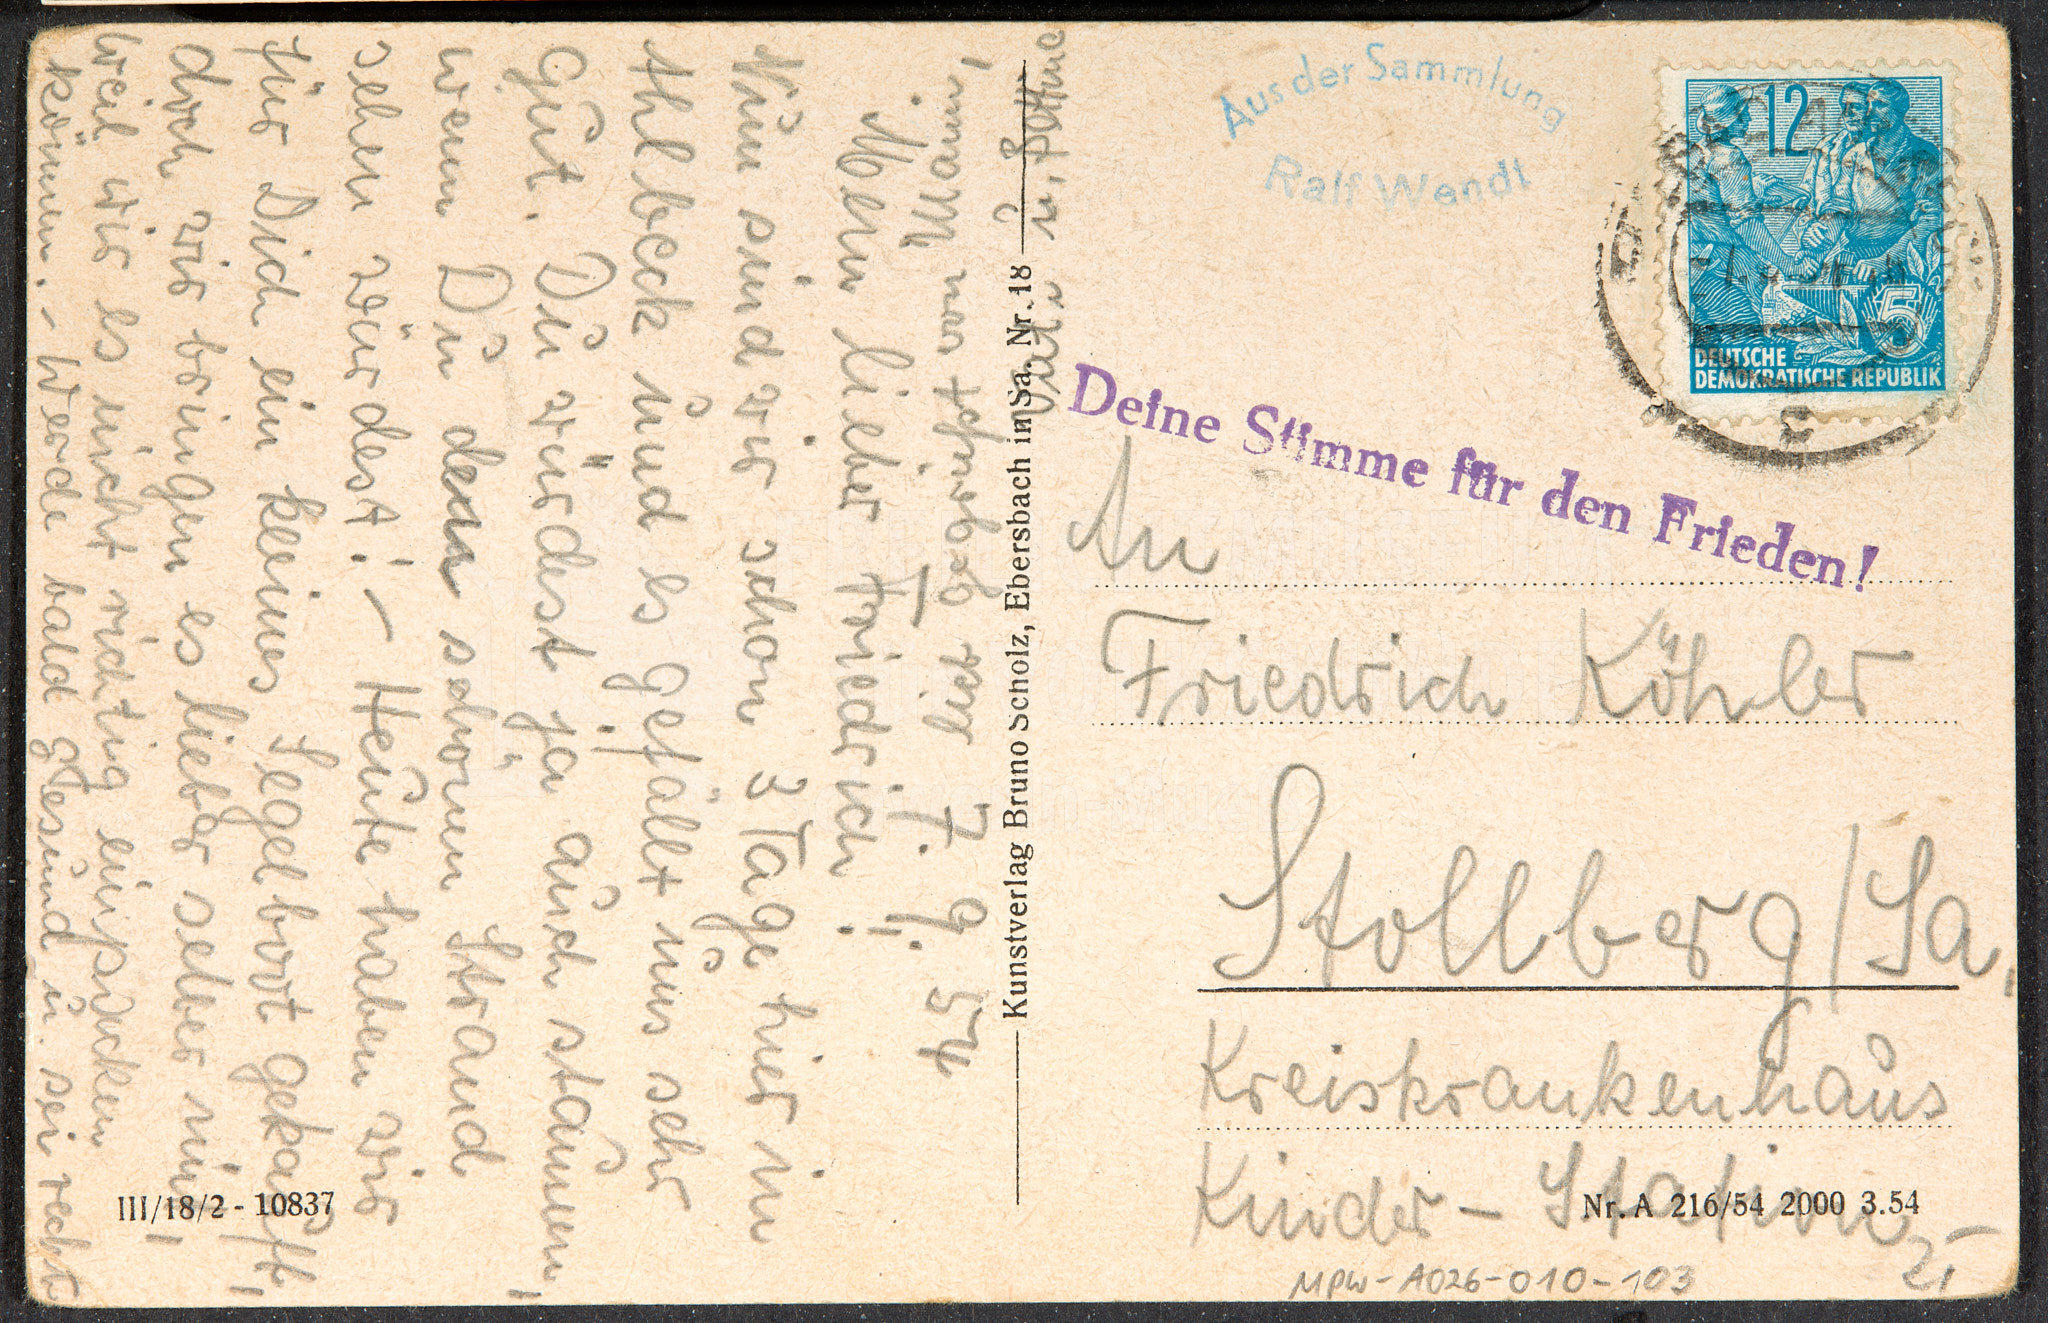 7. 9. 54
Mein lieber Friedrich!
Nun sind wir schon 3 Tage hier in
Ahlbeck und es gefällt uns sehr
gut. Du würdest ja auch staunen,
wenn Du den schönen Strand
sehen würdest! – Heute haben wir
für Dich ein kleines Segelboot gekauft,
doch wir bringen es lieber selber mit,
weil wir es nicht richtig einpacken
können. – Werde bald gesund u. sei recht
lieb
Mami
u.
Kunstverlag Bruno Scholz, Ebersbach in Sa. Nr. 18
III/18/2 - 10837
Aus der Sammlung
Ralf Wendt
12
5
DEUTSCHE
DEMOKRATISCHE REPUBLIK
Deine Stimme für den Frieden!
An
Friedrich Köhler
Stollberg/Sa.
Kreiskrankenhaus
Kinder-Station
Nr. A 216/54 2000 3.54
MPW-A026-010-103